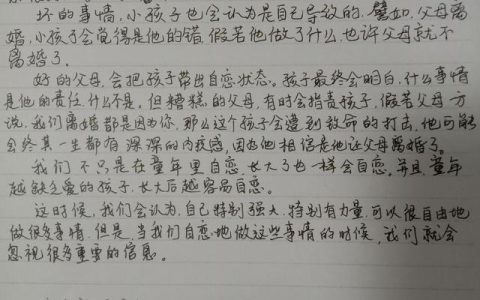 坏的事情,小孩子也会认为是自己导致的,譬如,父母离
婚,小孩子会觉得是他的错,假若他做了什么,也许父母就不
离婚了。
好的父母,会把孩子带出自恋状态。孩子最终会明白,什么事情
是他的责任,什么不是。但糟糕的父母,有时会指责孩子,假若父母一方
说,我们离婚都是因为你,那么这个孩子会遭到致命的打击,他可能
会终其一生都有深深的内疚感,因为他相信是他让父母离婚了。
我们不只是在童年里自恋,长大了也一样会自恋。并且,童年
越缺乏爱的孩子,长大后越容易自恋。
这时候,我们会认为,自己特别强大,特别有力量,可以很自由地
做很多事情,但是,当我们自恋地做这些事情的时候,我们就会
忽视很多重要的信息。